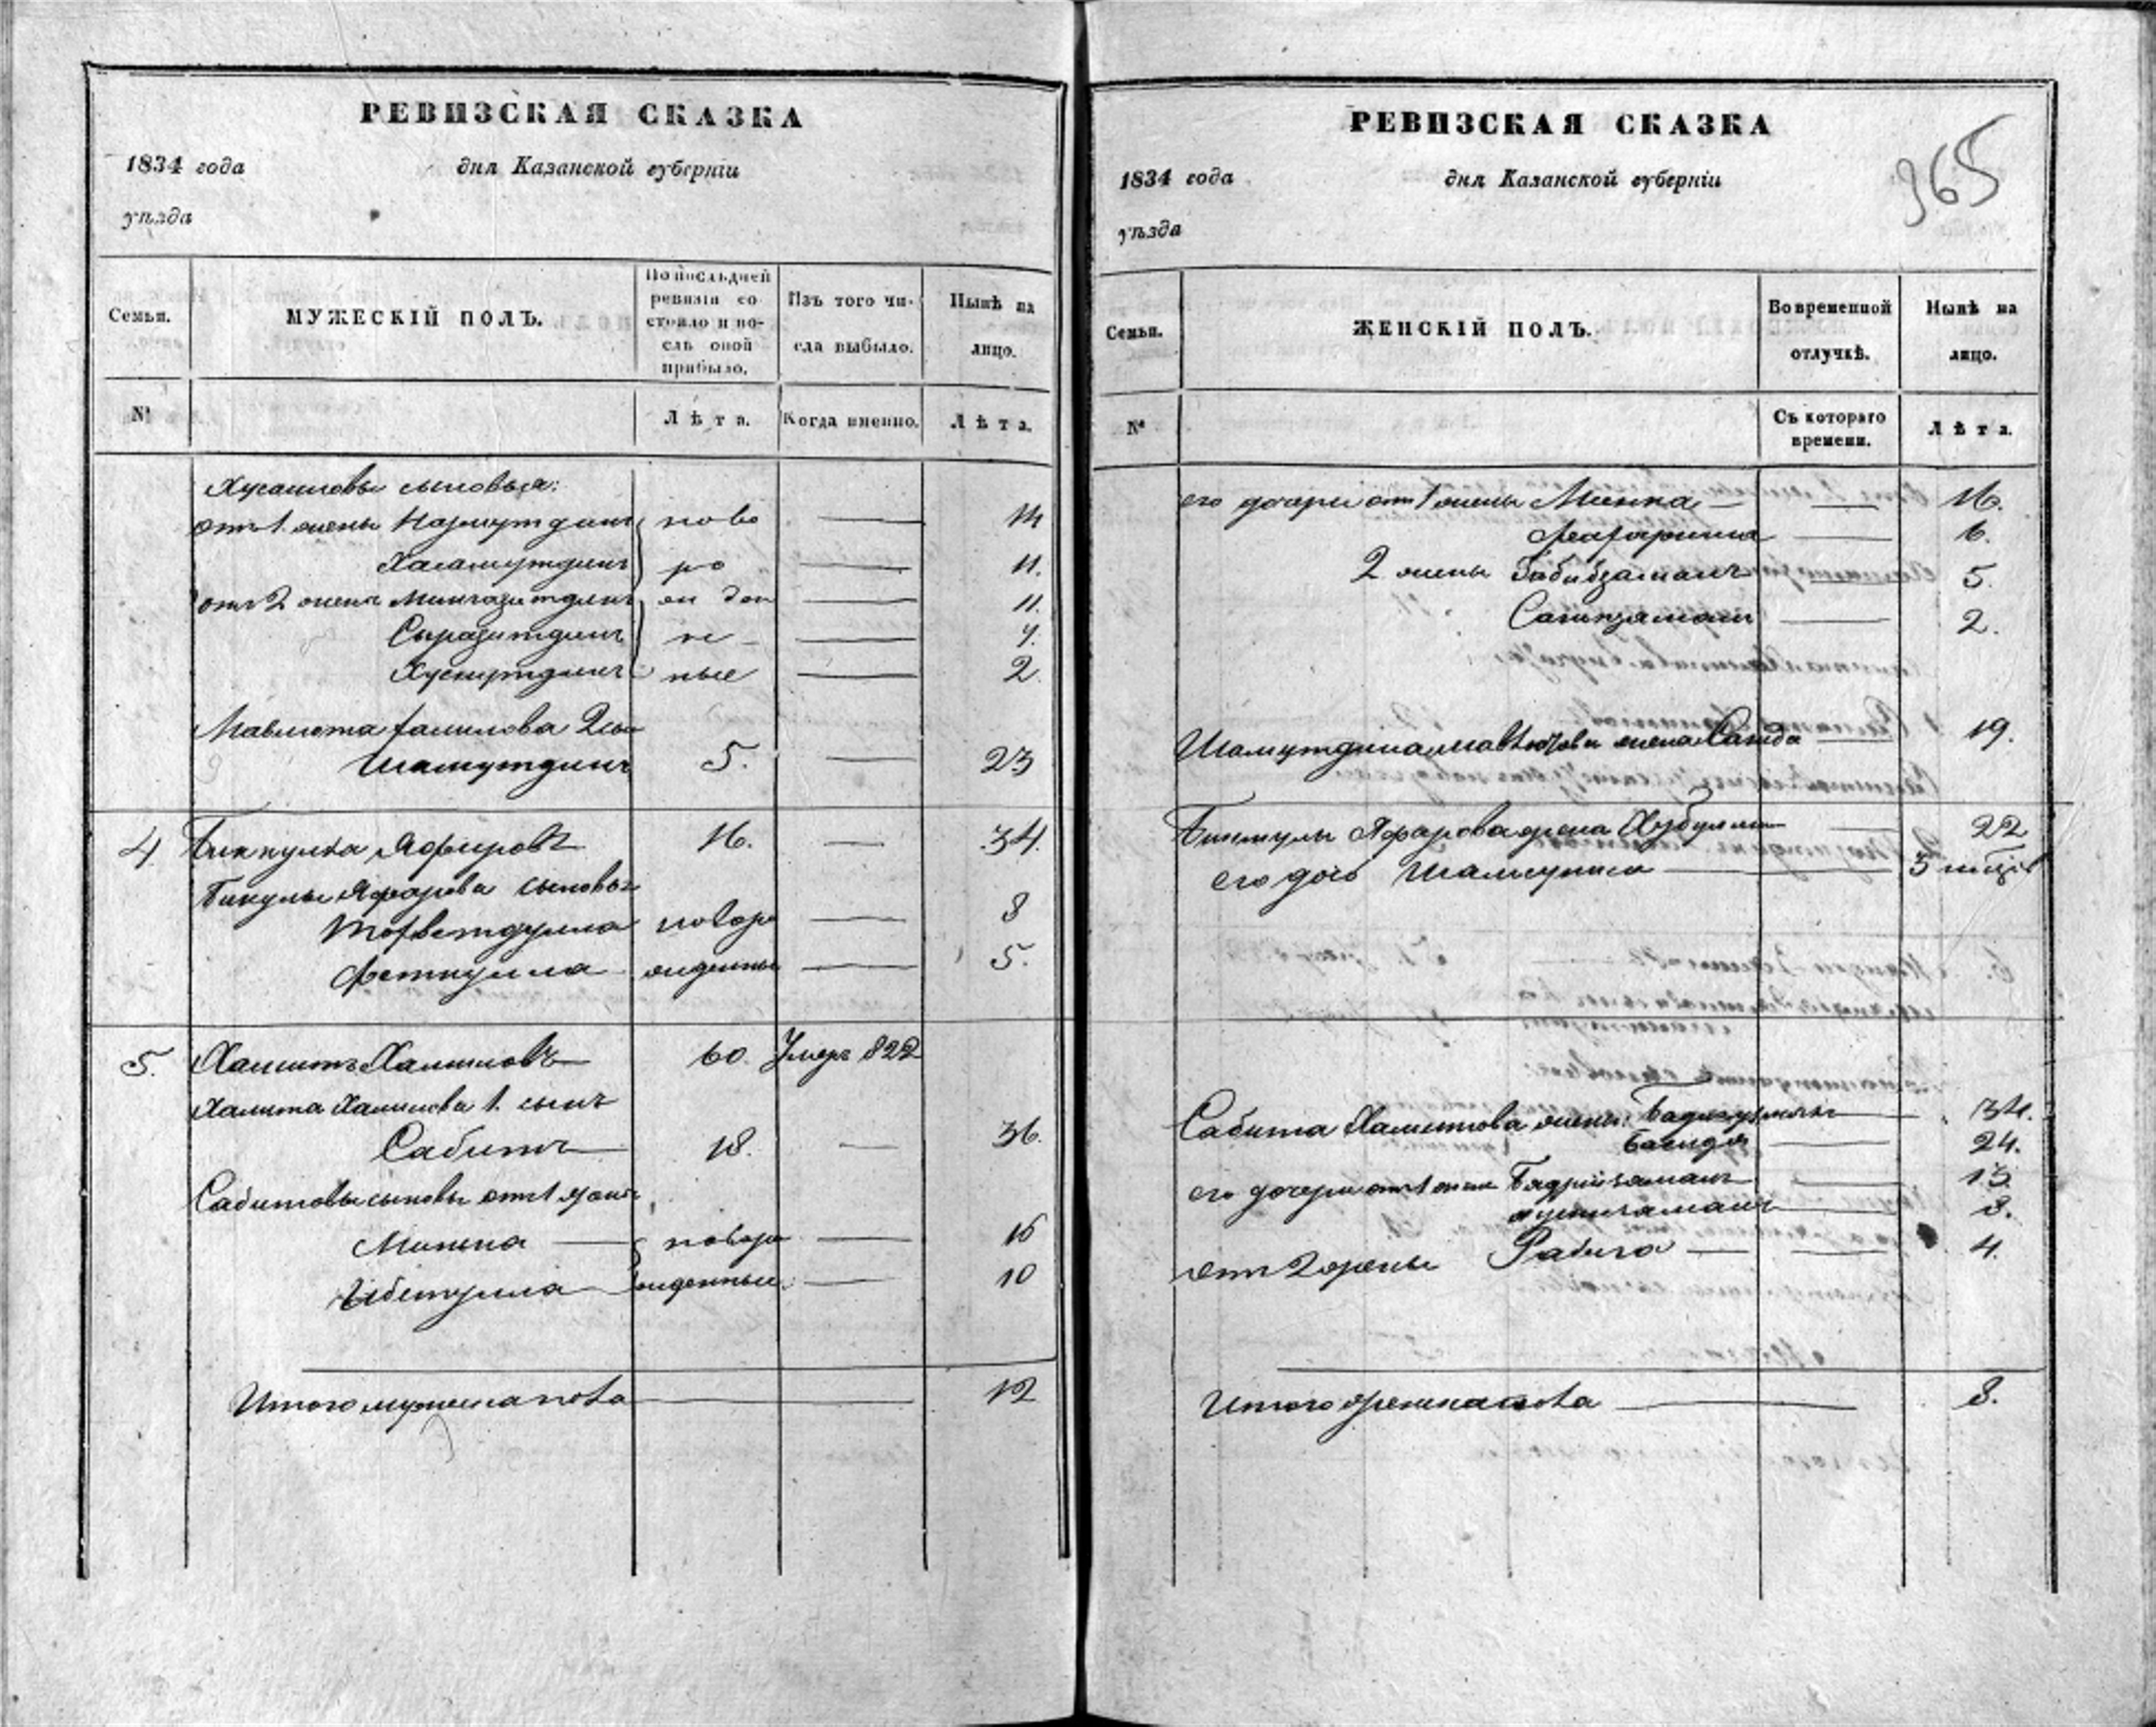 РЕВИЗСКАЯ СКАЗКА
1834 года дня Казанской губерніи
уѣзда
Семьи. МУЖЕСКІЙ ПОЛЪ. По послѣдней ревизіи состояло и послѣ оной прибыло. Изъ того числа выбыло. Нынѣ на лицо.
№ Лѣта. Когда именно. Лѣта.
Хусаиновы сыновья:
отъ 1. жены ново — 14
Хасамутдинъ ро — 11.
отъ 2 жены Мингазитдинъ жден — 11.
Сыразитдинъ н —
Хуснутдинъ ные — 2.
Мавлюта 2 сын
Шамутдинъ 5. — 23
4 Биккула Яфаровъ 16. — 34.
Бикулы Яфарова сыновья
новоро — 8
Феткулла жденны — 5.
5. Хамитъ Халиловъ 60. Умеръ 822
Хамита Халилова 1. сынъ
Сабитъ — 18. — 36.
Сабитовы сыновья отъ 1 жены
— новоро — 16
— жденные — 10
Итого мужеска пола — 12
РЕВИЗСКАЯ СКАЗКА
1834 года дня Казанской губерніи
уѣзда
365
Семьи. ЖЕНСКІЙ ПОЛЪ. Во временной отлучкѣ. Нынѣ на лицо.
№ Съ котораго времени. Лѣта.
его дочери отъ 1 жены — 16.
— 6.
2 жены Габибзаманъ — 5.
— 2.
Шамутдина Мавлютова жена Саида — 19.
Биккулы Яфарова жена — 22
его дочь — 3 мѣсяц
Сабита Хамитова жены: — 34.
— 24.
его дочери отъ 1 жены Бадризаманъ — 13
— 8.
отъ 2 жены Рабига — 4.
Итого женска пола — 8.